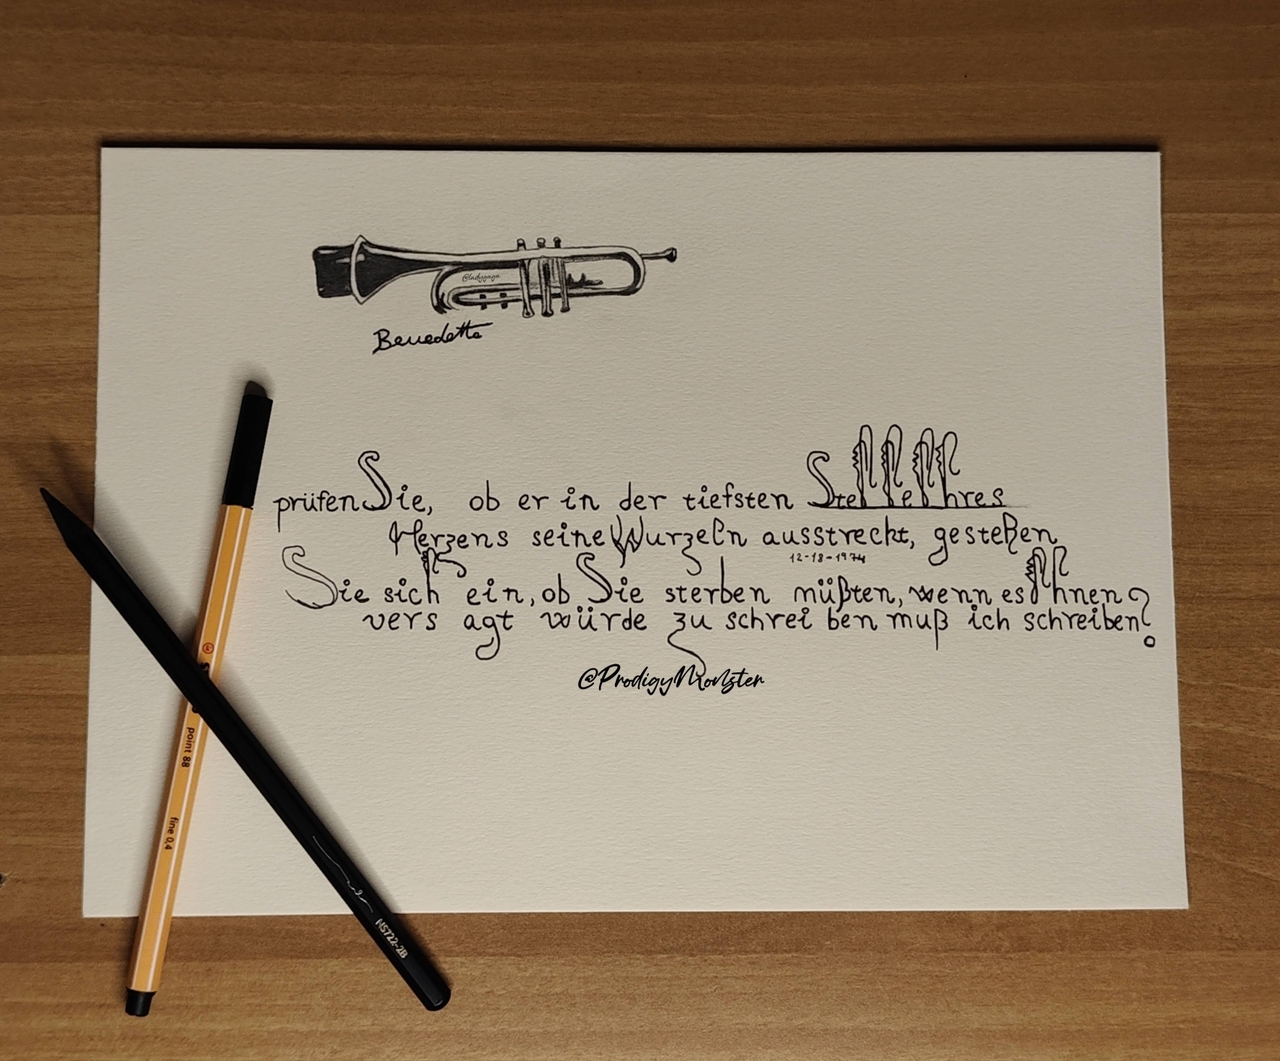 @ladygaga
Benedetta
prüfen Sie, ob er in der tiefsten Stelle Ihres
Herzens seine Wurzeln ausstreckt, gestehen
12-18-1974
Sie sich ein, ob Sie sterben müßten, wenn es Ihnen
vers agt würde zu schrei ben muß ich schreiben?
@ProdigyMonster
point 88
fine 0,4
HS722-2B